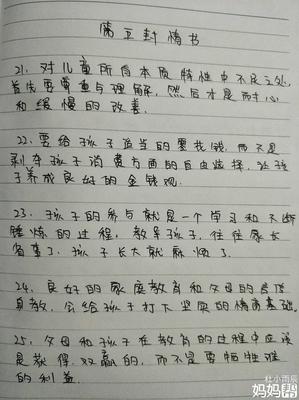 陪豆封情书
21. 对儿童所有本质特性中不足之处,
首先要尊重与理解,然后才是耐心
和缓慢的改善.
22. 要给孩子适当的零花钱,而不是
剥夺孩子消费方面的自由选择,让孩
子养成良好的金钱观.
23. 孩子的参与就是一个学习和不断
锤炼的过程,教育孩子,往往家长
省事了,孩子长大就麻烦了.
24. 良好的家庭教育和父母的言传
身教,会给孩子打下坚实的情商基础.
25. 父母和孩子在教育的过程中应该
是获得双赢的,而不是要牺牲谁
的利益.
杜小雨乐
妈妈帮